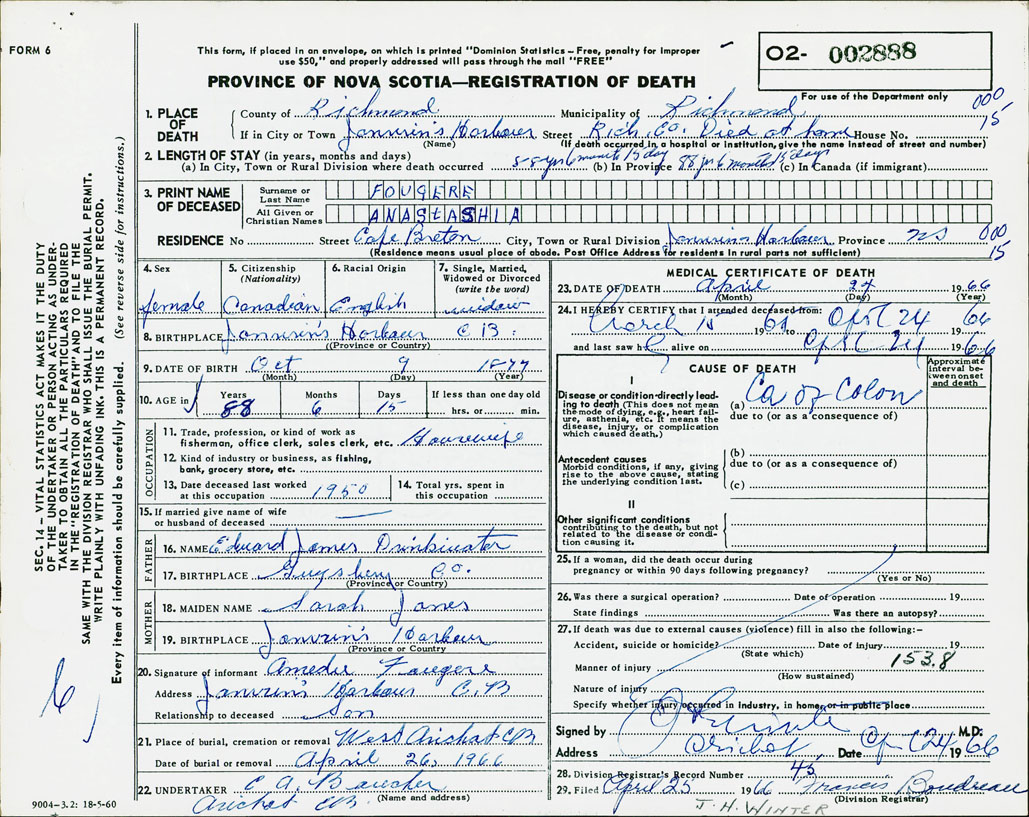 FORM 6
This form, if placed in an envelope, on which is printed "Dominion Statistics – Free, penalty for improper
use $50," and properly addressed will pass through the mail "FREE"
PROVINCE OF NOVA SCOTIA—REGISTRATION OF DEATH
02- 002888
For use of the Department only
000
15
1. PLACE OF DEATH
County of Richmond Municipality of Richmond
If in City or Town Janvrin's Harbour Street Rich. Co. Died at home House No.
(Name) (If death occurred in a hospital or institution, give the name instead of street and number)
2. LENGTH OF STAY (in years, months and days)
(a) In City, Town or Rural Division where death occurred 88 yrs 6 months 15 day (b) In Province 88 yrs 6 months 15 days (c) In Canada (if immigrant)
3. PRINT NAME OF DECEASED
Surname or Last Name FOUGERE
All Given or Christian Names ANAStASHIA
RESIDENCE No Street Cape Breton City, Town or Rural Division Janvrin's Harbour Province NS
000
15
(Residence means usual place of abode. Post Office Address for residents in rural parts not sufficient)
4. Sex female
5. Citizenship (Nationality) Canadian
6. Racial Origin English
7. Single, Married, Widowed or Divorced (write the word) widow
8. BIRTHPLACE Janvrin's Harbour C B.
(Province or Country)
9. DATE OF BIRTH Oct 9 1877
(Month) (Day) (Year)
10. AGE in Years 88 Months 6 Days 15 If less than one day old hrs. or min.
OCCUPATION
11. Trade, profession, or kind of work as
fisherman, office clerk, sales clerk, etc. Housewife
12. Kind of industry or business, as fishing,
bank, grocery store, etc.
13. Date deceased last worked at this occupation 1950
14. Total yrs. spent in this occupation
15. If married give name of wife
or husband of deceased —
FATHER
16. NAME Edward James Drinkwater
17. BIRTHPLACE Guysboro Co.
(Province or Country)
MOTHER
18. MAIDEN NAME Sarah Janes
19. BIRTHPLACE Janvrin's Harbour
(Province or Country)
20. Signature of informant Amedie Fougere
Address Janvrin's Harbour C.B
Relationship to deceased Son
21. Place of burial, cremation or removal West Arichat CB
Date of burial or removal April 26, 1966
22. UNDERTAKER C A. Boucher
Arichat CB.
(Name and address)
9004–3.2: 18-5-60
MEDICAL CERTIFICATE OF DEATH
23. DATE OF DEATH April 24 1966
(Month) (Day) (Year)
24. I HEREBY CERTIFY that I attended deceased from:
March 15 1964 to April 24 1966
and last saw h alive on April 24 1966
CAUSE OF DEATH
Approximate interval between onset and death
I
Disease or condition directly leading to death (This does not mean
the mode of dying, e.g., heart failure, asthenia, etc. It means the
disease, injury, or complication
which caused death.)
(a) Ca of Colon
due to (or as a consequence of)
Antecedent causes
Morbid conditions, if any, giving
rise to the above cause, stating
the underlying condition last.
(b)
due to (or as a consequence of)
(c)
II
Other significant conditions
contributing to the death, but not
related to the disease or condition causing it.
25. If a woman, did the death occur during
pregnancy or within 90 days following pregnancy?
(Yes or No)
26. Was there a surgical operation? Date of operation 19
State findings Was there an autopsy?
27. If death was due to external causes (violence) fill in also the following:–
Accident, suicide or homicide? Date of injury 19
(State which)
153.8
Manner of injury
(How sustained)
Nature of injury
Specify whether injury occurred in Industry, in home, or in public place
Signed by M.D.
Address Arichat Date Apr 24 1966
28. Division Registrar's Record Number 45
29. Filed April 25 1966 Francis Boudreau
(Division Registrar)
J. H. WINTER
SEC. 14 – VITAL STATISTICS ACT MAKES IT THE DUTY
OF THE UNDERTAKER OR PERSON ACTING AS UNDERTAKER TO OBTAIN ALL THE PARTICULARS REQUIRED
IN THE "REGISTRATION OF DEATH" AND TO FILE THE
SAME WITH THE DIVISION REGISTRAR WHO SHALL ISSUE THE BURIAL PERMIT.
WRITE PLAINLY WITH UNFADING INK. THIS IS A PERMANENT RECORD.
Every item of information should be carefully supplied. (See reverse side for instructions.)